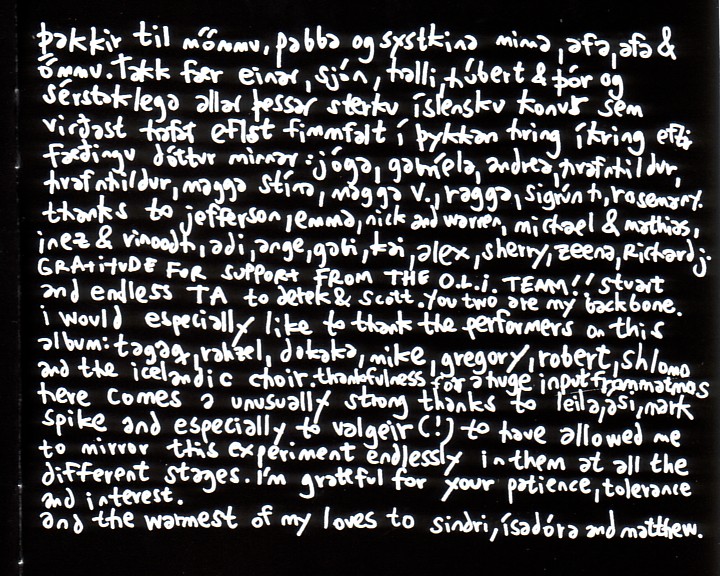 þakkir til mömmu, pabba og systkina mina, afa, afa &
ömmu. Takk fær einar, sjón, halli, húbert & þór og
sérstaklega allar þessar sterku íslensku konur sem
virðast hafa eflst fimmfalt í þykkan hring íkring eftir
fæðingu dóttur minnar: jóga, gabríela, andrea, hrafnhildur,
hrafnhildur, magga stína, magga v., ragga, sigrún h, rosemary.
thanks to jefferson, emma, nick and warren, michael & mathias,
inez & vinoodh, adi, ange, gabi, kai, alex, sherry, zeena, Richard j.
GRATiTUDE FOR SUPPORT FROM THE O.L.i. TEAM!! stuart
and endless TA to derek & scott. You two are my backbone.
i would especially like to thank the performers on this
album: tagaq, rahzel, dokaka, mike, gregory, robert, shlomo
and the icelandic choir. thankfulness for a huge input from matmos
here comes a unusually strong thanks to leila, asi, mark
spike and especially to valgeir (!) to have allowed me
to mirror this experiment endlessly in them at all the
different stages. i'm grateful for your patience, tolerance
and interest.
and the warmest of my loves to sindri, ísadóra and matthew.